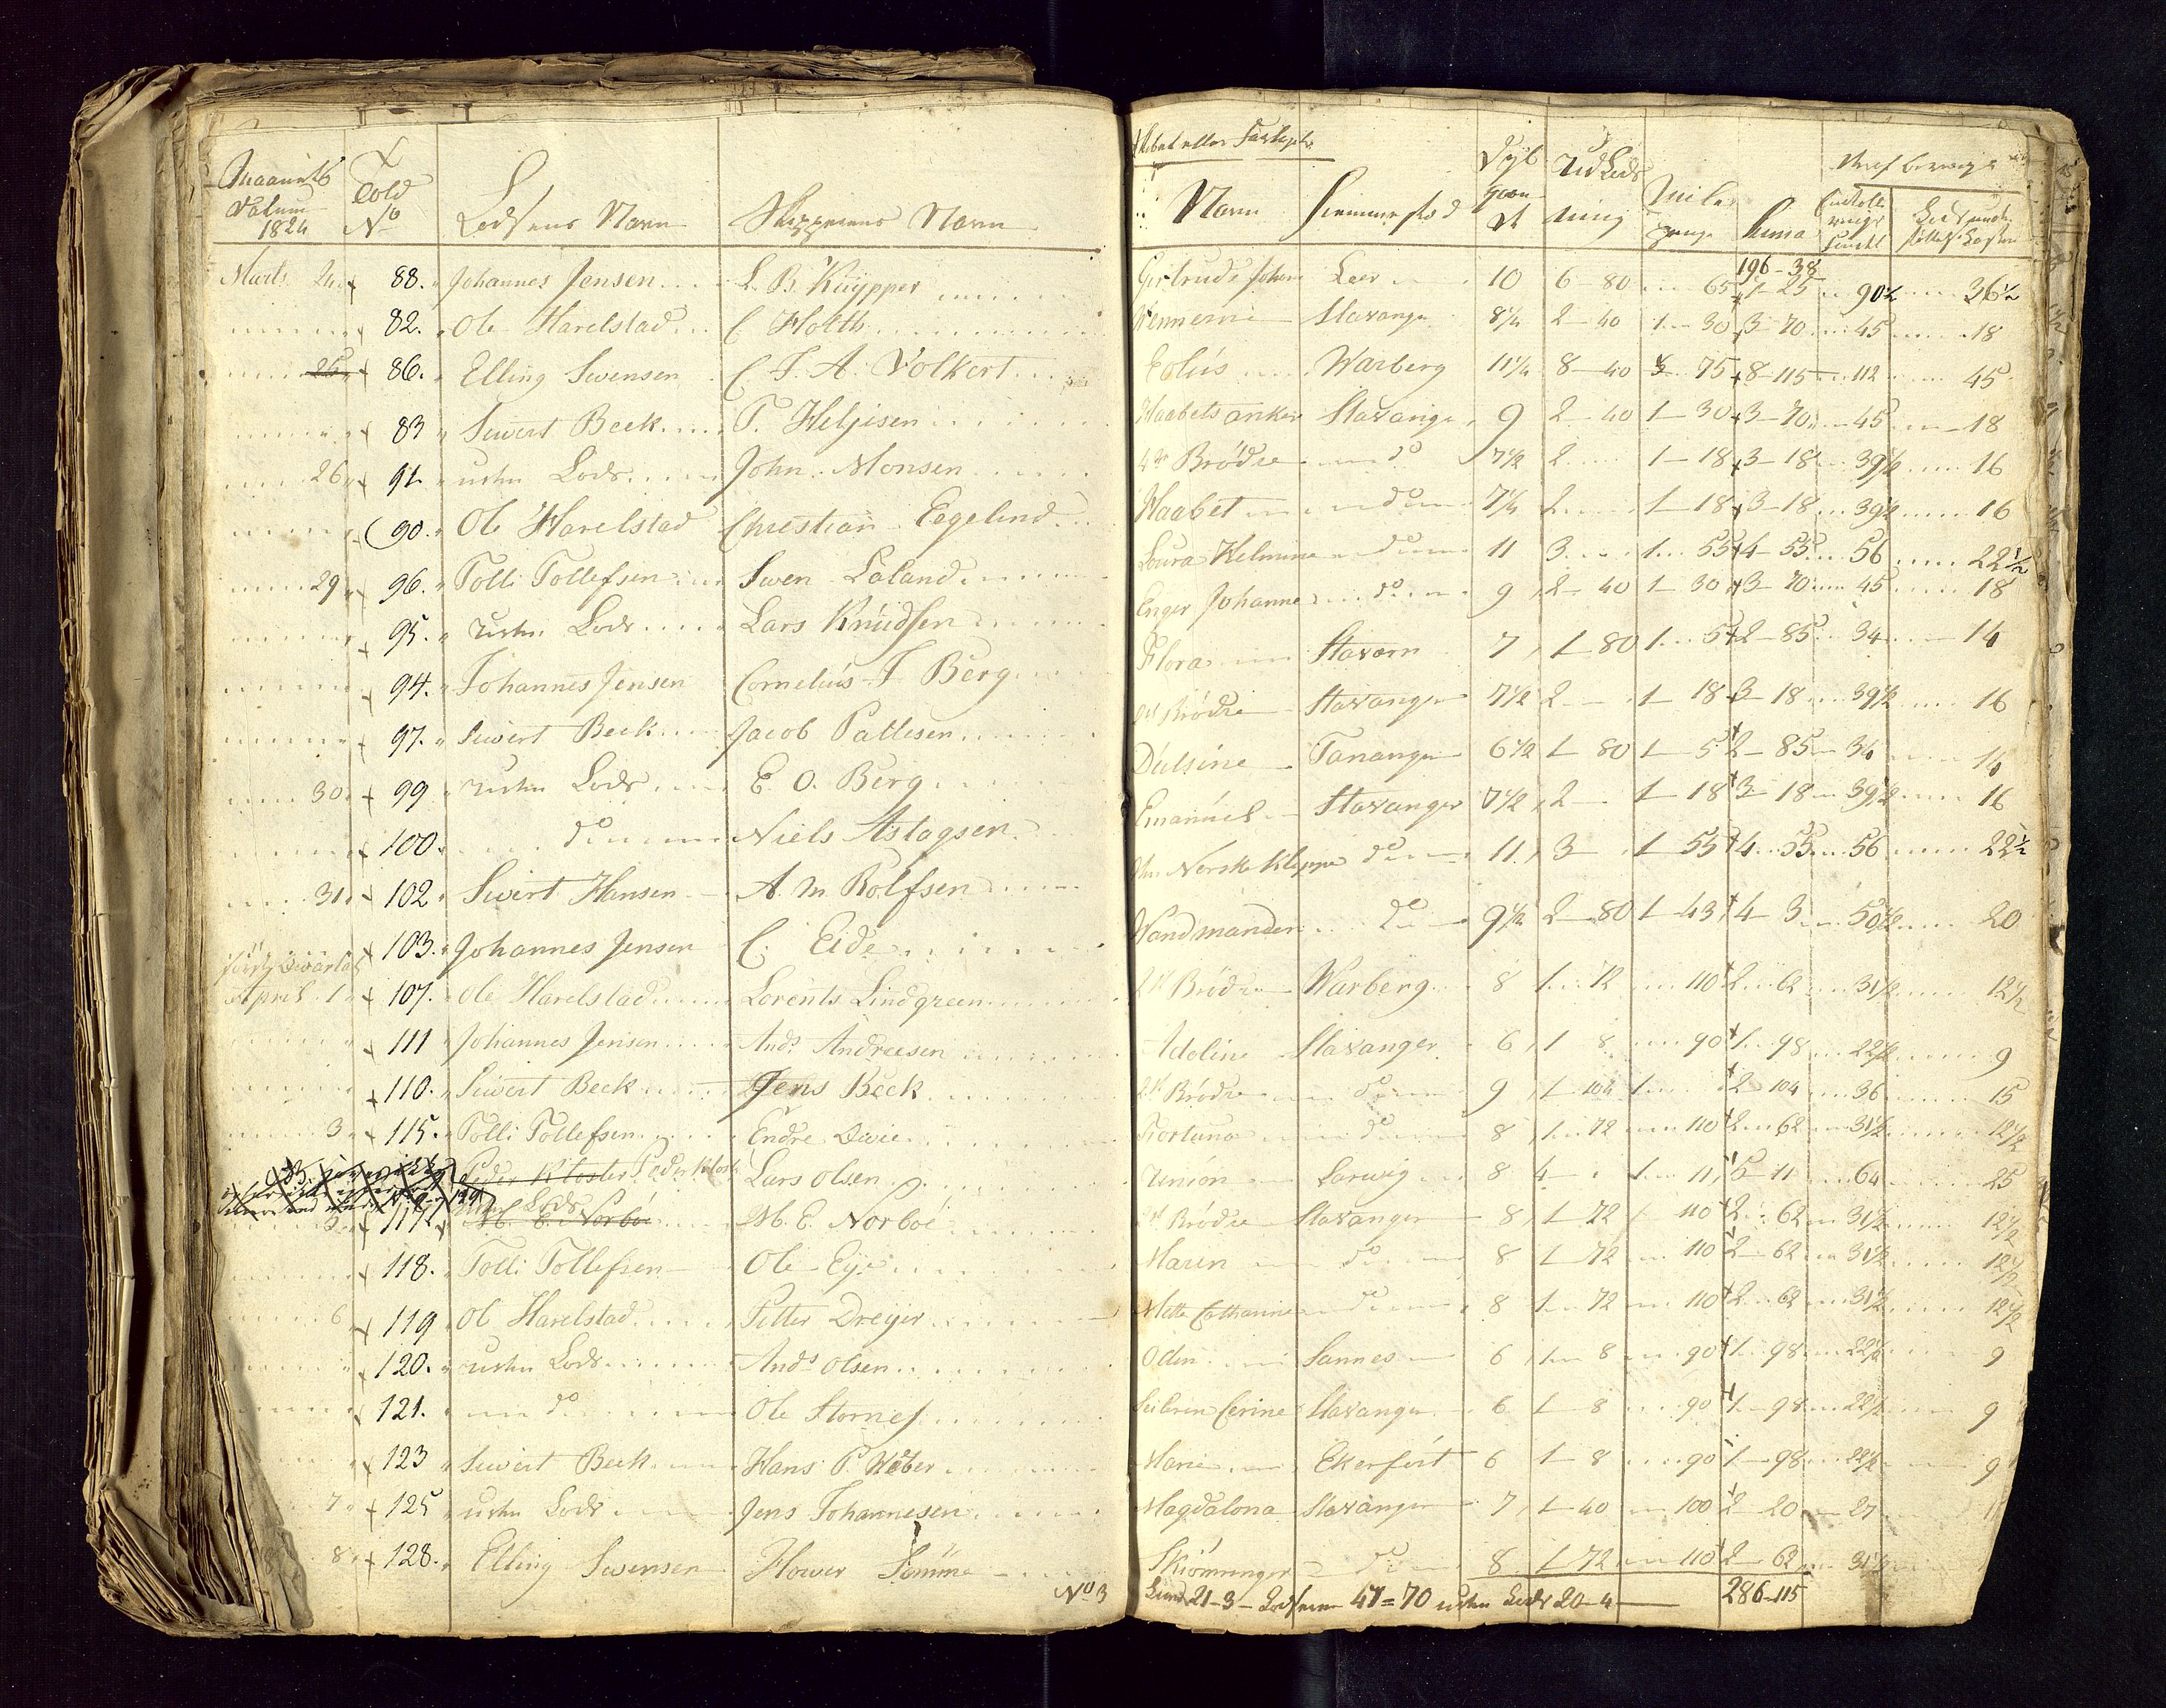 Maaneds Datum 1824 | Told No | Lodsens Navn | Skipperens Navn
Marts 24 88. Johannes Jensen L. B. Kuypper
82. Ole Harelstad C Holth
25 86. Elling Svensen C. F. A. Volkert
83 Siwert Beck T. Heljesen
26 91. uden Lods John Monsen
90. Ole Harelstad Christian Eegelund
29 96. Tolli Tollefsen Swen Laland
95. uden Lods Lars Knudsen
94. Johannes Jensen Cornelius F Berg
97. Siwert Beck Jacob Pallesen
30 99 uden Lods E. O. Berg
100 do Niels Aslagsen
31 102 Siwert Hansen A. M Rolfsen
103. Johannes Jensen C. Eide
April 1 107. Ole Harelstad Lorents Lindgreen
111 Johannes Jensen Ands Andreesen
110. Siwert Beck Jens Beck
3 115. Tolli Tollefsen Endre Dvie
Peder Kloster Lars Olsen
5 117 Lods M. E. Norboe M. E. Norboe
118. Tolli Tollefsen Ole Eye
6 119 Ol Harelstad Petter Dreyer
120. uden Lods Ands Olsen
121. do Ole Stornes
123 Siwert Beck Hans P. Weber
7 125 uden Lods Jens Johannesen
8 128. Elling Svensen Hower Sømme
No 3
Skibet eller Fartøyets
Navn | Hiemmested | Dyb gaaende | Ud Lodsning | Mile penge | Suma
196-38
Gertrude Johan Leer 10 6-80 65 1-25 90½ 36½
Wennerne Stavanger 8¼ 2-40 1-30 3-70 45 18
Eolus Warberg 11¼ 8-40 75 8-115 112 45
Haabets anker Stavanger 9 2-40 1-30 3-70 45 18
4re Brødre do 7½ 2 1-18 3-18 39½ 16
Haabet do 7¼ 2 1-18 3-18 39½ 16
Loura Helmine do 11 3 1-55 4-55 56 22½
Enger Johanne do 9 2-40 1-30 3-70 45 18
Flora Stavern 7 1-80 1-5 2-85 34 14
Brødre Stavanger 7½ 2 1-18 3-18 39½ 16
Dulsine Tananger 6½ 1-80 1-5 2-85 34 14
Emanuel Stavanger 7½ 2 1-18 3-18 39½ 16
den Norske Kleppe do 11 3 1-55 4-55 56 22½
Wandmanden do 9½ 2-80 1-43 4-3 50½ 20
Brødre Warberg 8 1-72 110 2-62 31½ 12½
Adoline Stavanger 6 1-8 90 1-98 22½ 9
Brødre do 9 1-104 1 2-104 36 15
Fortuna do 8 1-72 110 2-62 31½ 12½
Union Larwig 8 4 1-11 5-11 64 25
Brødre Stavanger 8 1-72 110 2-62 31½ 12½
Maren do 8 1-72 110 2-62 31½ 12½
Mette Cathanine do 8 1-72 110 2-62 31½ 12½
Odin Sannes 6 1-8 90 1-98 22½ 9
Serine Stavanger 6 1-8 90 1-98 22½ 9
Marie Ekerfört 6 1-8 90 1-98 22½ 9
Magdalona Stavanger 7 1-40 100 2-20 27 11
Skiønninger do 8 1-72 110 2-62 31½
21-3 Lodserne 47=70 uden Lods 20-4 286-115